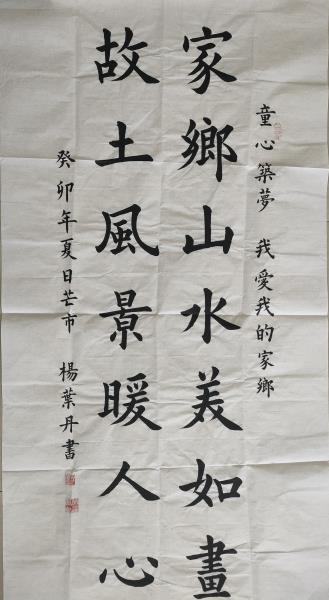 童心築夢 我愛我的家鄉
家鄉山水美如畫
故土風景暖人心
癸卯年夏日芒市 楊葉丹書